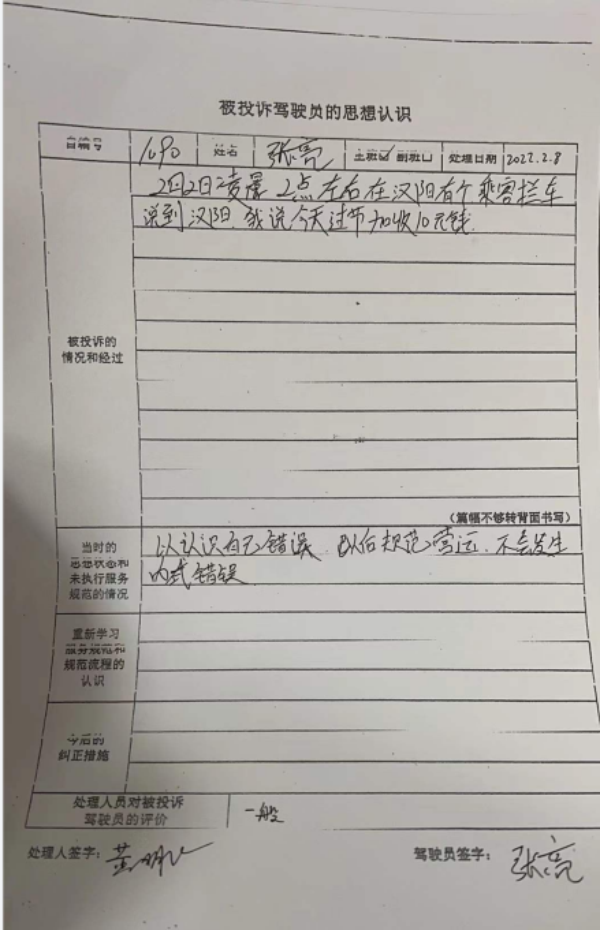 被投诉驾驶员的思想认识
自编号 1090 姓名 张亮 主班☑ 副班□ 处理日期 2022.2.8
2月2日凌晨 2点左右在汉阳有个乘客拦车
说到汉阳,我说今天过节加收10元钱.
被投诉的
情况和经过
(篇幅不够转背面书写)
当时的
思想状态和
未执行服务
规范的情况
以认识自己错误 以后规范营运.不会发生
内式错误
重新学习
服务规范和
规范流程的
认识
今后的
纠正措施
处理人员对被投诉
驾驶员的评价
一般
处理人签字: 黄
驾驶员签字: 张亮